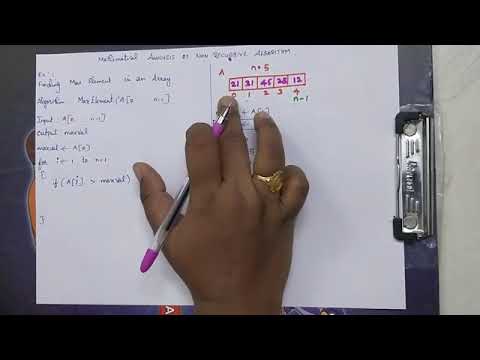 Mathematical Analysis of Non Recursive Algorithm
Ex:
Finding Max Element in an Array
Algorithm MaxElement (A[0 n-1]
Input : A[0 n-1]
Output maxval
maxval ← A[0]
for i ← 1 to n-1
{
if (A[i] > maxval)
}
n = 5
A
21 31 45 28 12
0 1 2 3 4
n-1
← A[